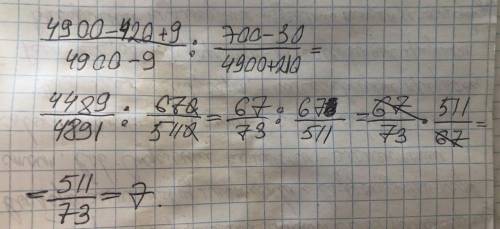 4900-420+9 / 4900-9 : 700-30 / 4900+210 =
4489 / 4891 : 670 / 5110 = 67 / 73 : 67 / 511 = 67 / 73 · 511 / 67 =
= 511 / 73 = 7.